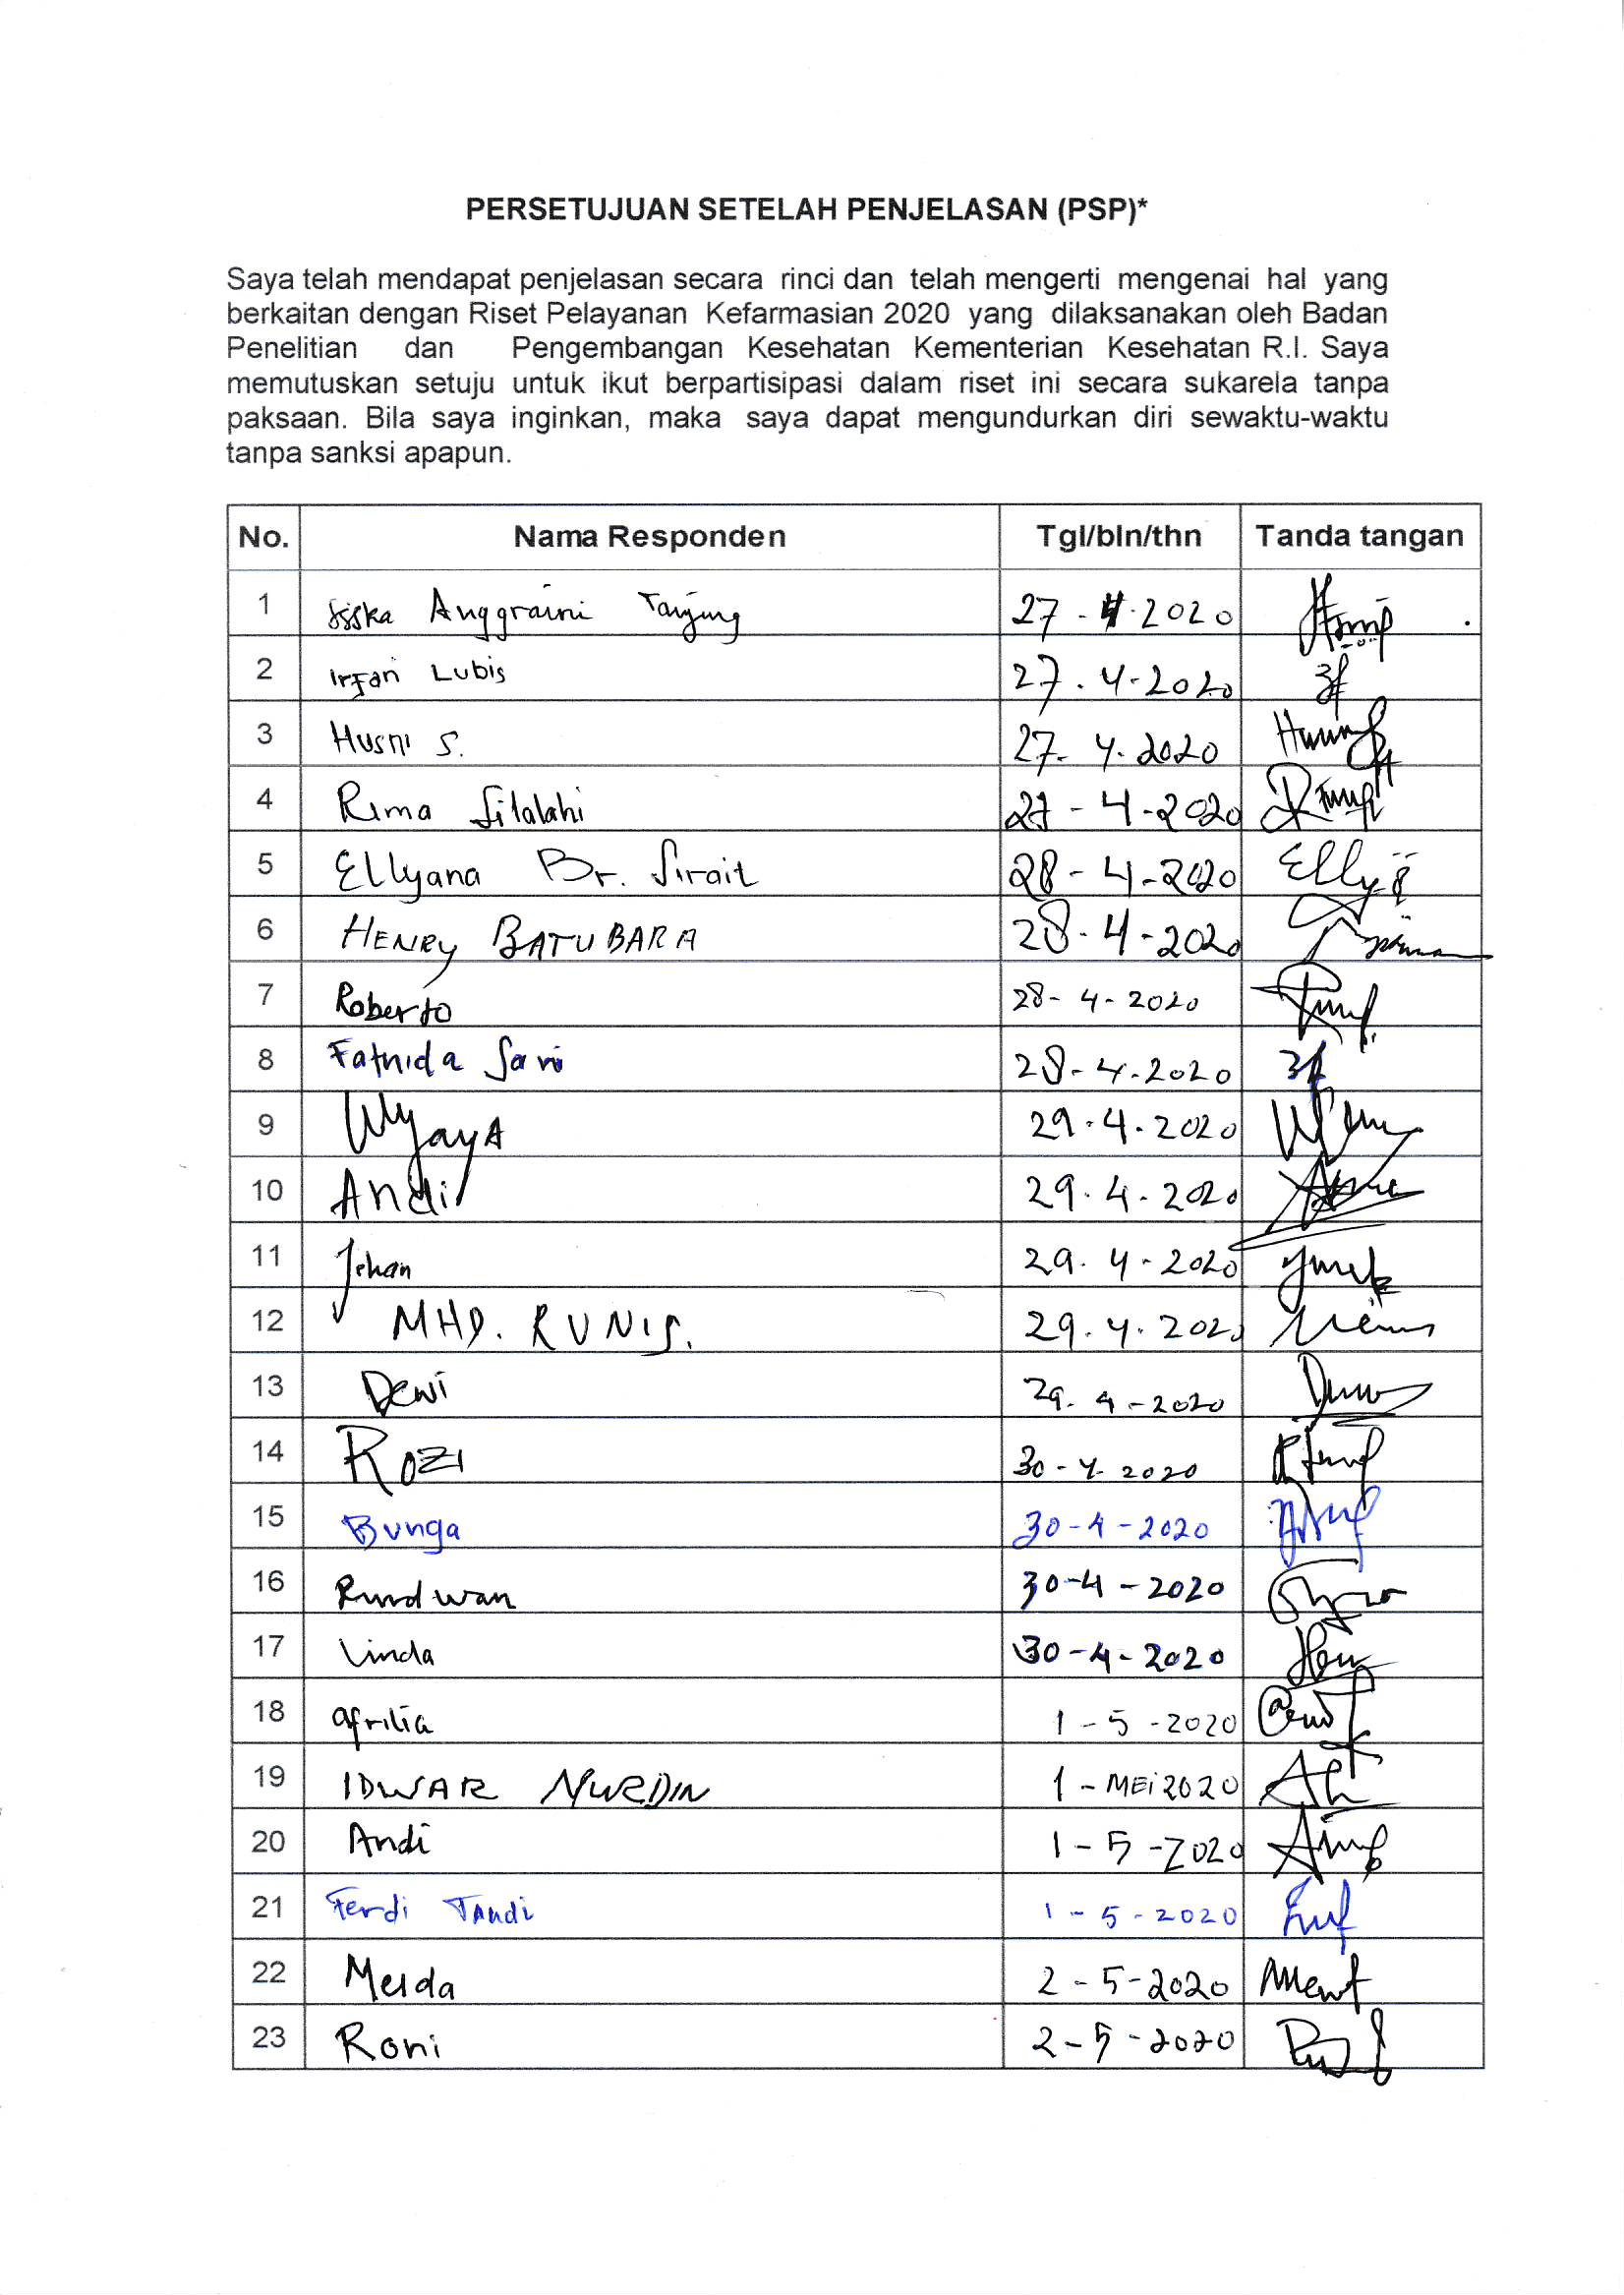 PERSETUJUAN SETELAH PENJELASAN (PSP)*
Saya telah mendapat penjelasan secara rinci dan telah mengerti mengenai hal yang
berkaitan dengan Riset Pelayanan Kefarmasian 2020 yang dilaksanakan oleh Badan
Penelitian dan Pengembangan Kesehatan Kementerian Kesehatan R.I. Saya
memutuskan setuju untuk ikut berpartisipasi dalam riset ini secara sukarela tanpa
paksaan. Bila saya inginkan, maka saya dapat mengundurkan diri sewaktu-waktu
tanpa sanksi apapun.
No. Nama Responden Tgl/bln/thn Tanda tangan
1 Siska Anggraini Tanjung 27 - 4 - 2020
2 Irfan Lubis 27 . 4 - 2020
3 Husni S. 27 - 4 - 2020
4 Rima Silalahi 27 - 4 - 2020
5 Ellyana Br. Sirait 28 - 4 - 2020
6 HENRY BATUBARA 28 - 4 - 2020
7 Roberto 28 - 4 - 2020
8 Sari 28 - 4 - 2020
9 Wijaya 29 - 4 - 2020
10 Andi 29 - 4 - 2020
11 Jehan 29 - 4 - 2020
12 MHD. RUNIS. 29 . 4 . 2020
13 Dewi 29 . 4 - 2020
14 ROZI 30 - 4 - 2020
15 Bunga 30 - 4 - 2020
16 30 - 4 - 2020
17 Linda 30 - 4 - 2020
18 afrilia 1 - 5 - 2020
19 IDWAR NURDIN 1 - MEi 2020
20 Andi 1 - 5 - 2020
21 Ferdi Tandi 1 - 5 - 2020
22 Meida 2 - 5 - 2020
23 Roni 2 - 5 - 2020